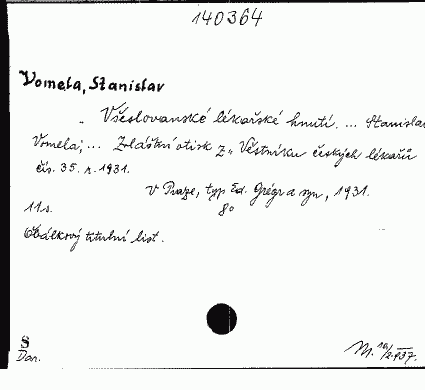 140364
Vomela, Stanislav
Všeslovanské lékařské hnutí. ... Stanislav
Vomela; ... Zvláštní otisk z „Věstníku českých lékařů
čís. 35. r. 1931.
V Praze, typ Ed. Grégr a syn, 1931.
8°
11 s.
Obálkový titulní list.
S
Dar.
M.